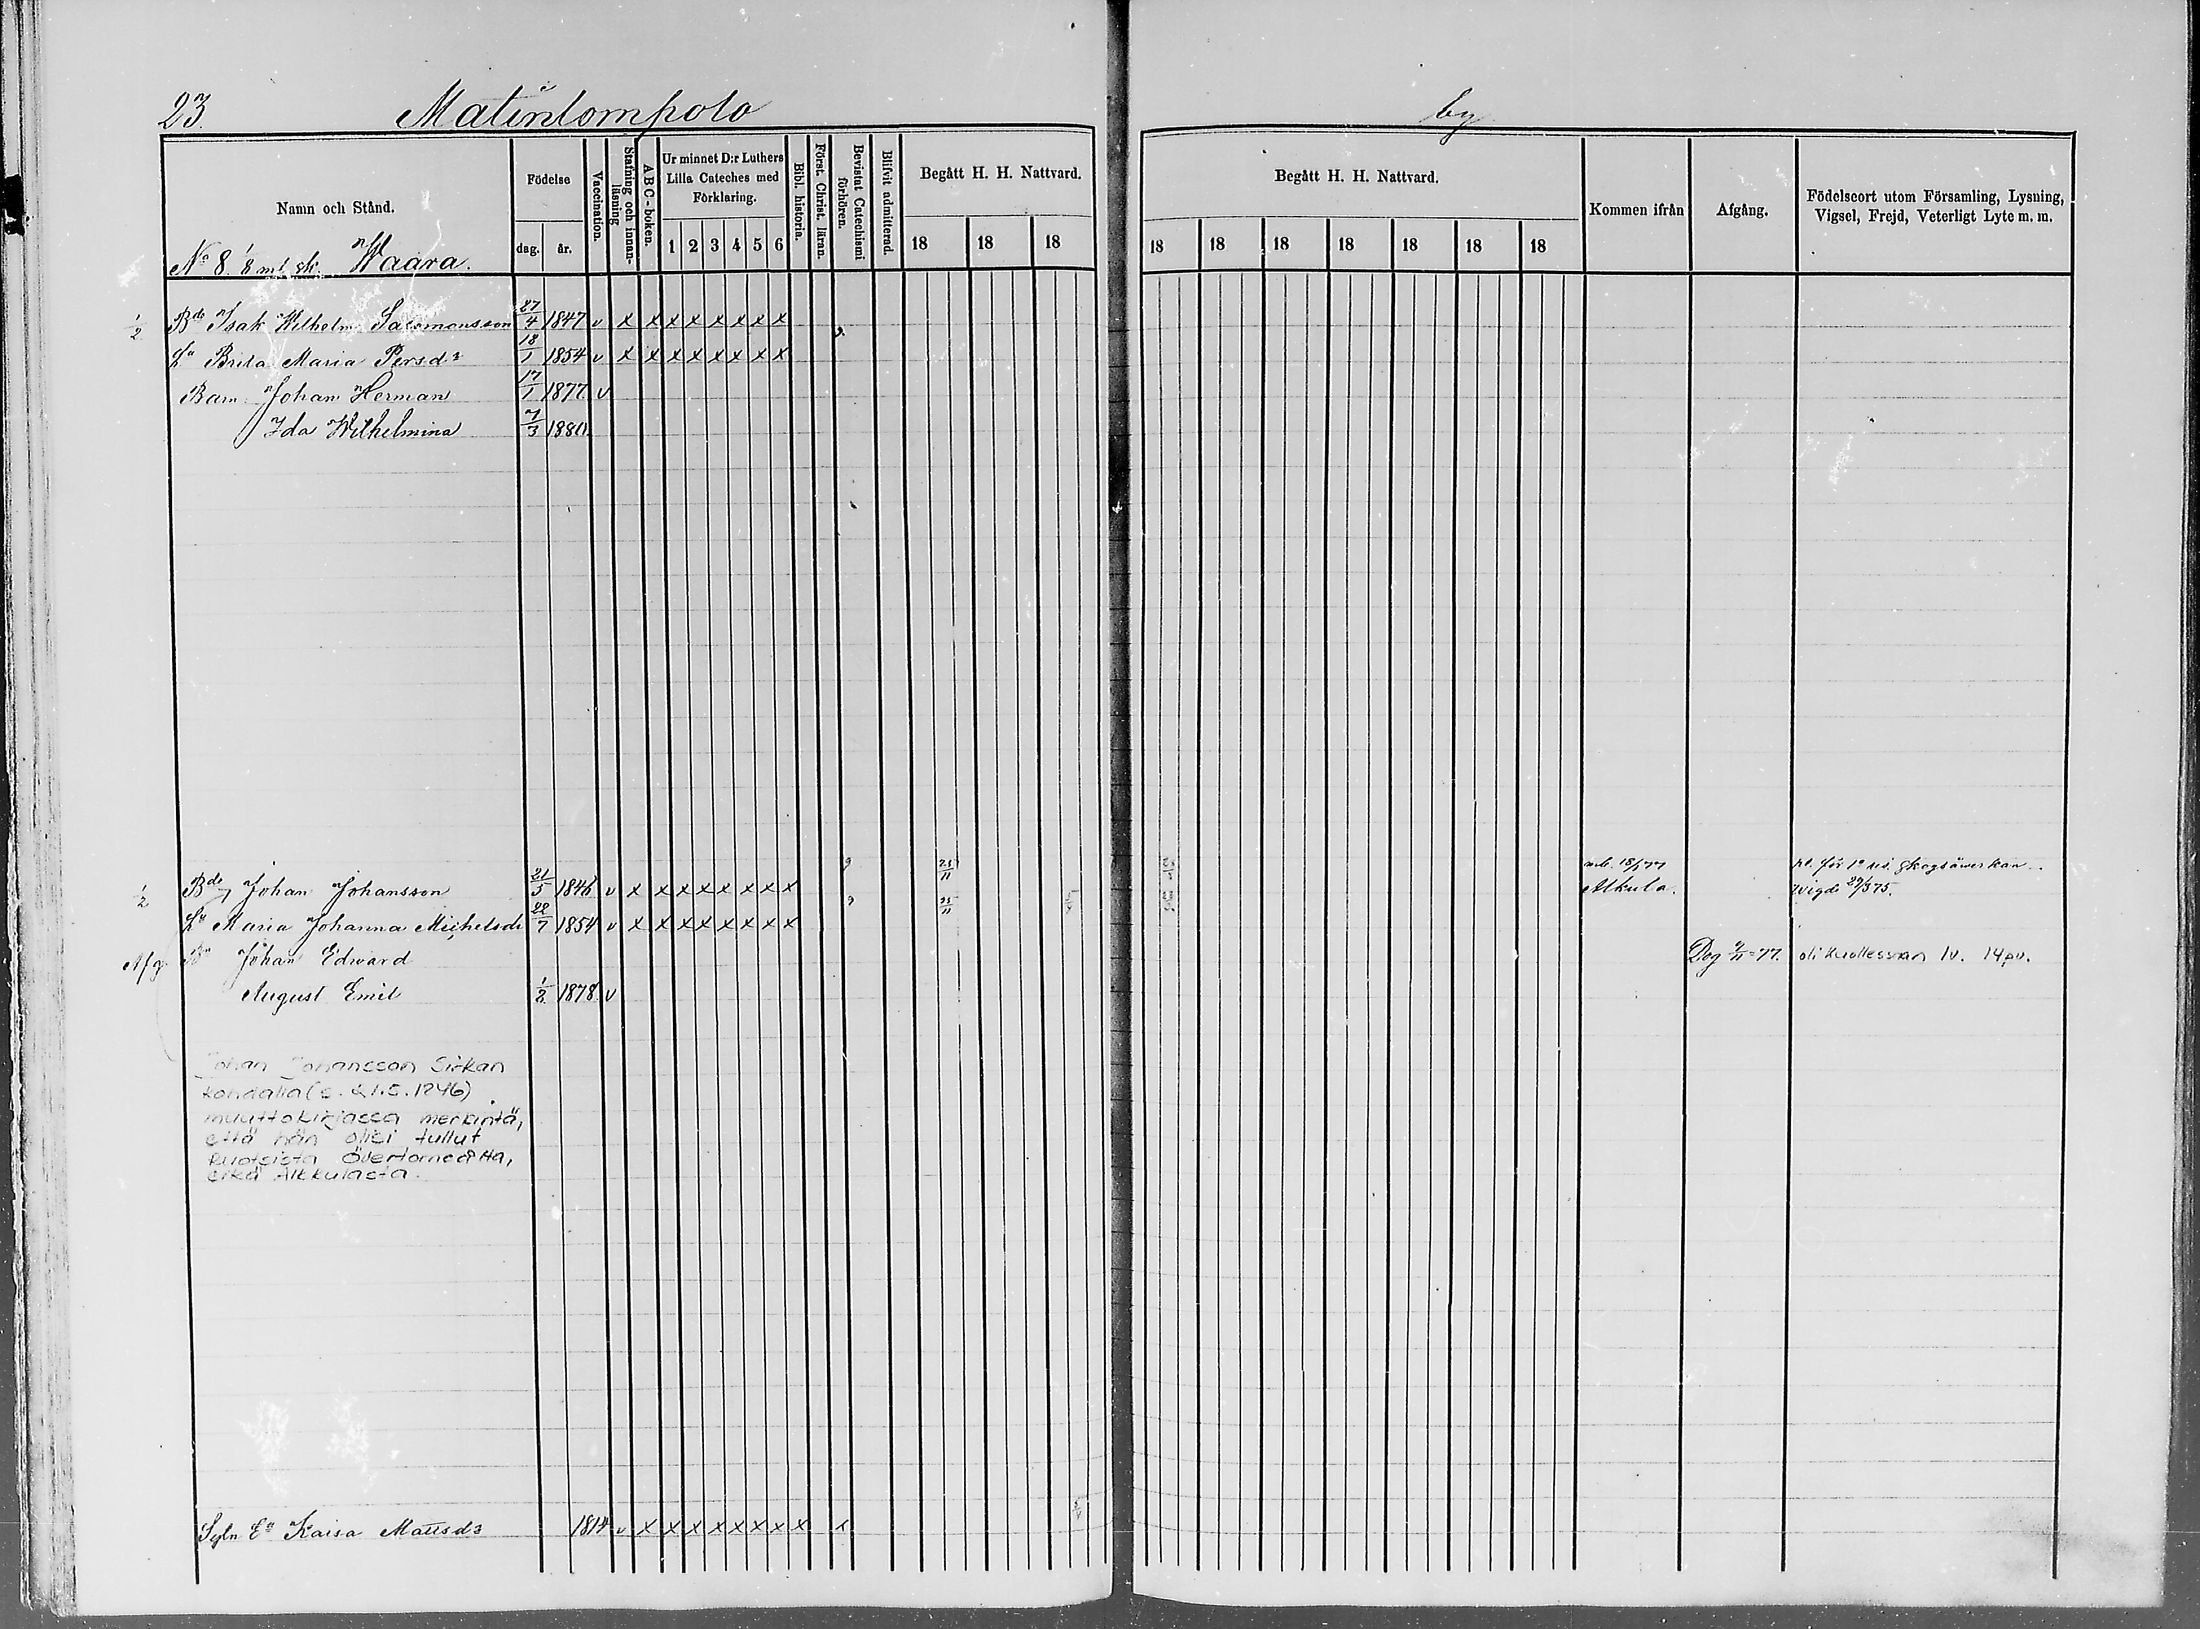 23.
Matinlompolo
by
Namn och Stånd.
Födelse
dag.
år.
Vaccination.
Stafning och innan-läsning
A B C - boken.
Ur minnet D:r Luthers
Lilla Cateches med
Förklaring.
1 2 3 4 5 6
Bibl. historia.
Först. Christ. läran.
Bevistat Catechismi förhören.
Blifvit admitterad.
Begått H. H. Nattvard.
18 18 18
Begått H. H. Nattvard.
18 18 18 18 18 18 18
Kommen ifrån
Afgång.
Födelseort utom Församling, Lysning,
Vigsel, Frejd, Veterligt Lyte m. m.
No 8. 1/8 mtl sk. Waara.
1/2 Bde Isak Wilhelm Salomonsson 27/4 1847 v x x x x x x x x
Hu Brita Maria Persdr 18/1 1854 v x x x x x x x x
Barn Johan Herman 17/1 1877 v
Ida Wilhelmina 7/3 1880
1/2 Bde Johan Johansson 21/5 1846 v x x x x x x x x
Alkula.
Vigde 29/3 75.
Hu Maria Johanna Michelsdr 22/7 1854 v x x x x x x x x
Afg. Johan Edward
Dog 9/11 77.
oli kuollessaan 1v. 14pv.
August Emil 1/2 1878 v
Johan Johansson Sirkan
kohdalla (s. 21.5.1846)
muuttokirjassa merkintä,
että hän olisi tullut
Ruotsista Övertorneålta,
eikä Alkkulasta.
Sytn Ea Kaisa Mattsdr 1814 v x x x x x x x x x